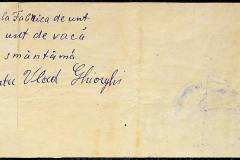 la Fabrica de unt
unt de vacă
smântână
Vlad Ghiorghi